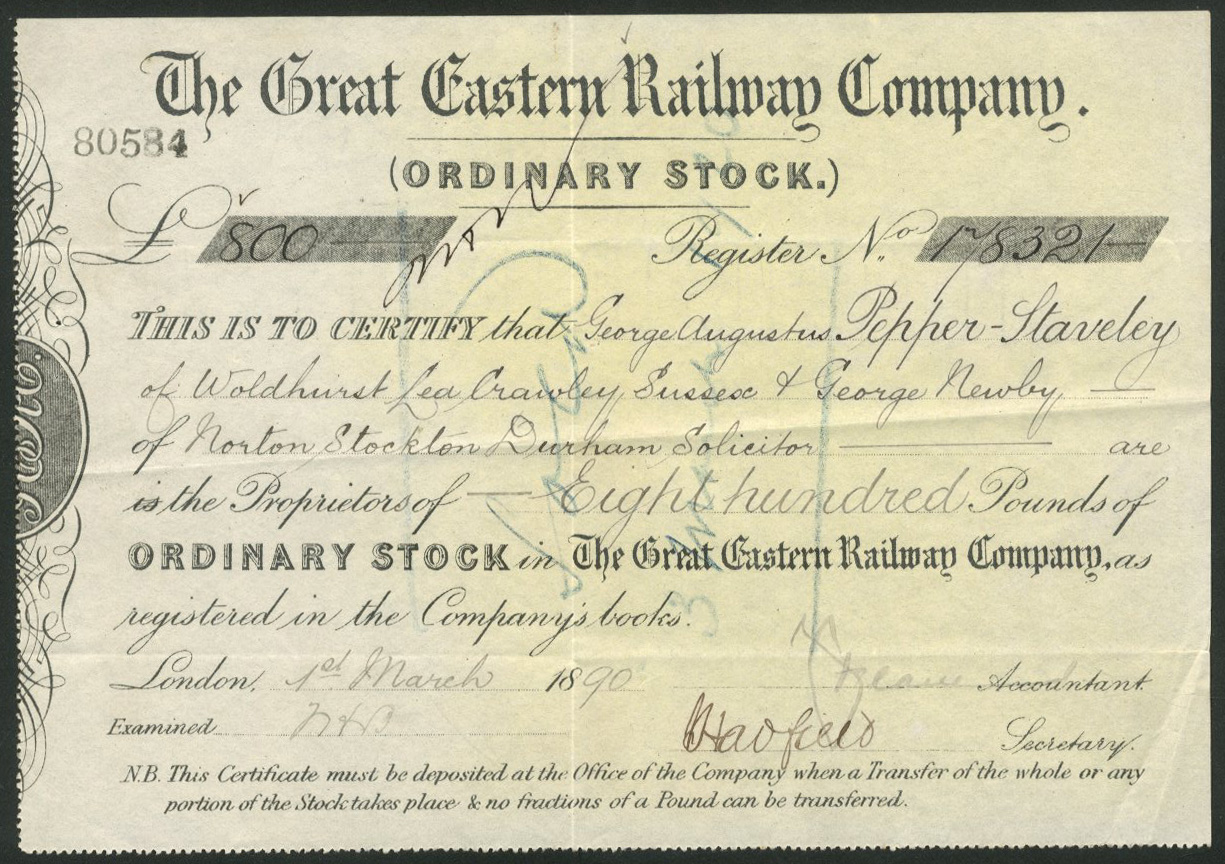 The Great Eastern Railway Company.
80584
(ORDINARY STOCK.)
£ 800 Register No. 178321
THIS IS TO CERTIFY that George Augustus Pepper-Staveley
of Woldhurst Lea Crawley Sussex & George Newby
of Norton Stockton Durham Solicitor are
is the Proprietors of Eight hundred Pounds of
ORDINARY STOCK in The Great Eastern Railway Company, as
registered in the Company's books.
London, 1st March 1890 Accountant.
Examined Hadfield Secretary.
N.B. This Certificate must be deposited at the Office of the Company when a Transfer of the whole or any
portion of the Stock takes place & no fractions of a Pound can be transferred.